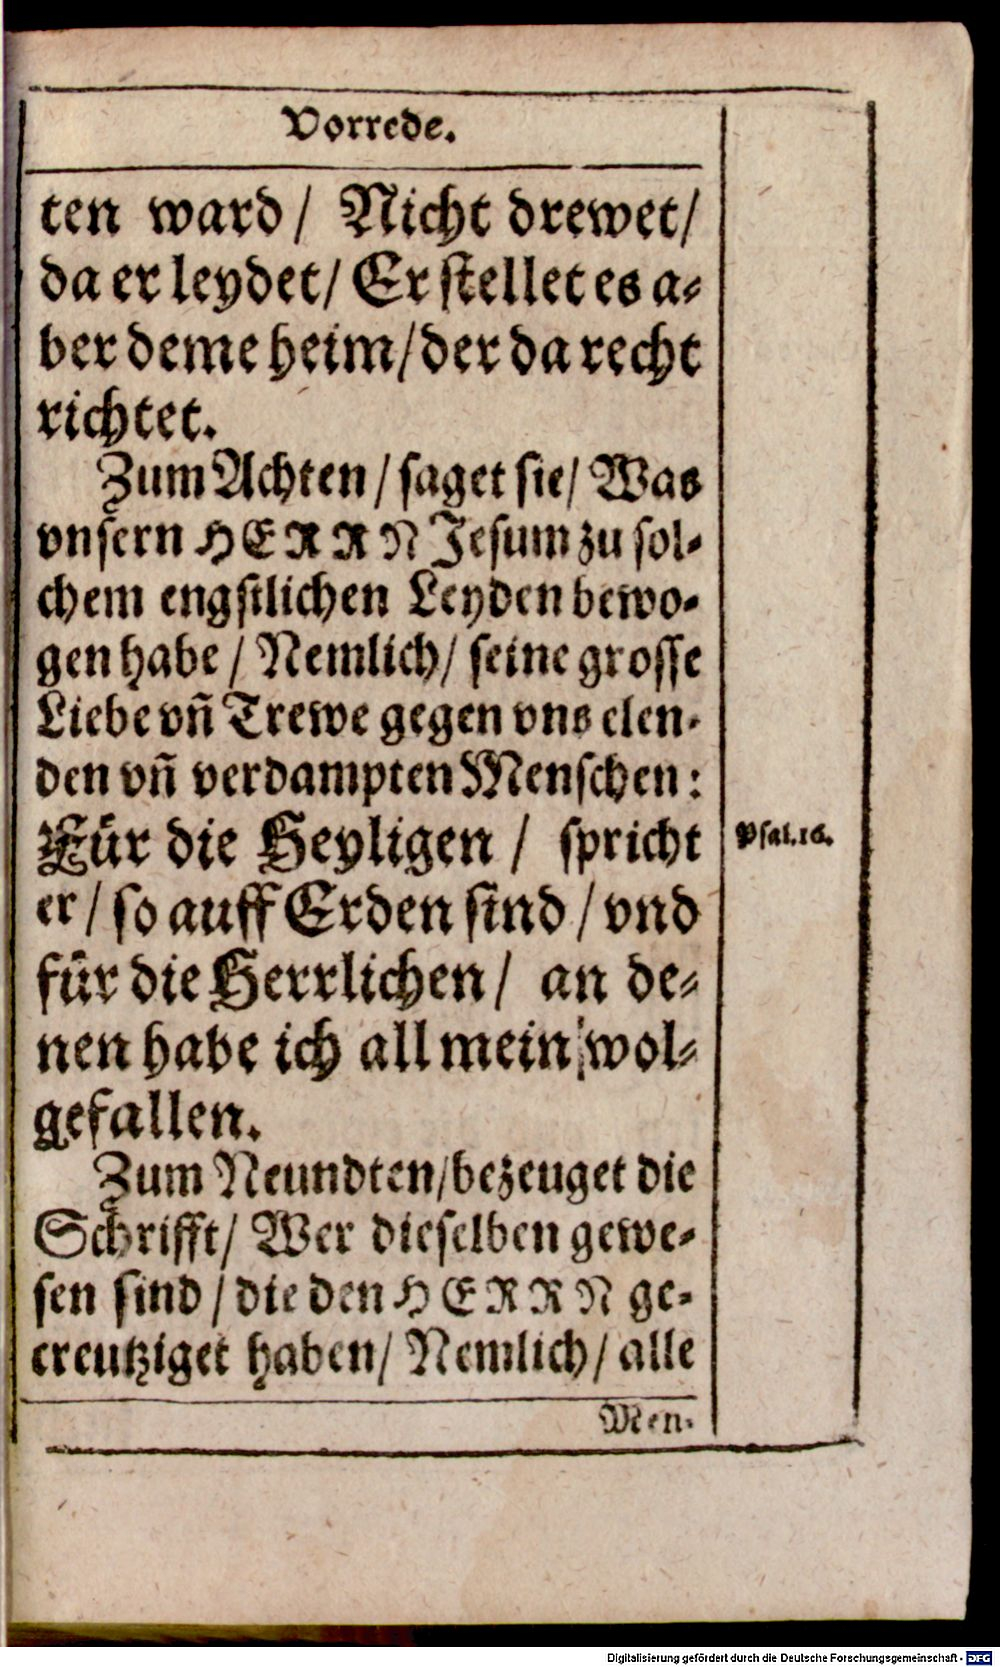 Vorrede.
ten ward/ Nicht drewet/
da er leydet/ Er stellet es a-
ber deme heim/ der da recht
richtet.
Zum Achten/ saget sie/ Was
vnsern HERRN Jesum zu sol-
chem engstlichen Leyden bewo-
gen habe/ Nemlich/ seine grosse
Liebe vñ Trewe gegen vns elen-
den vñ verdampten Menschen:
Für die Heyligen/ spricht
Psal.16.
er/ so auff Erden sind/ vnd
für die Herrlichen/ an de-
nen habe ich all mein wol-
gefallen.
Zum Neundten/ bezeuget die
Schrifft/ Wer dieselben gewe-
sen sind/ die den HERRN ge-
creutziget haben/ Nemlich/ alle
Men-
Digitalisierung gefördert durch die Deutsche Forschungsgemeinschaft - DFG